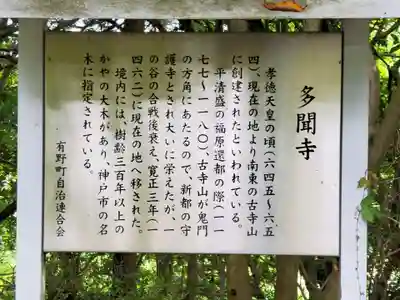 多聞寺
孝徳天皇の頃(六四五～六五
四)、現在の地より南東の古寺山
に創建されたといわれている。
平清盛の福原遷都の際(一一
七七～一一八〇)古寺山が鬼門
の方角にあたるので、新都の守
護寺とされ大いに栄えたが、一
の谷の合戦後衰え、寛正三年(一
四六二)に現在の地へ移された。
境内には、樹齢三百年以上の
かやの大木があり、神戸市の名
木に指定されている。
有野町自治連合会